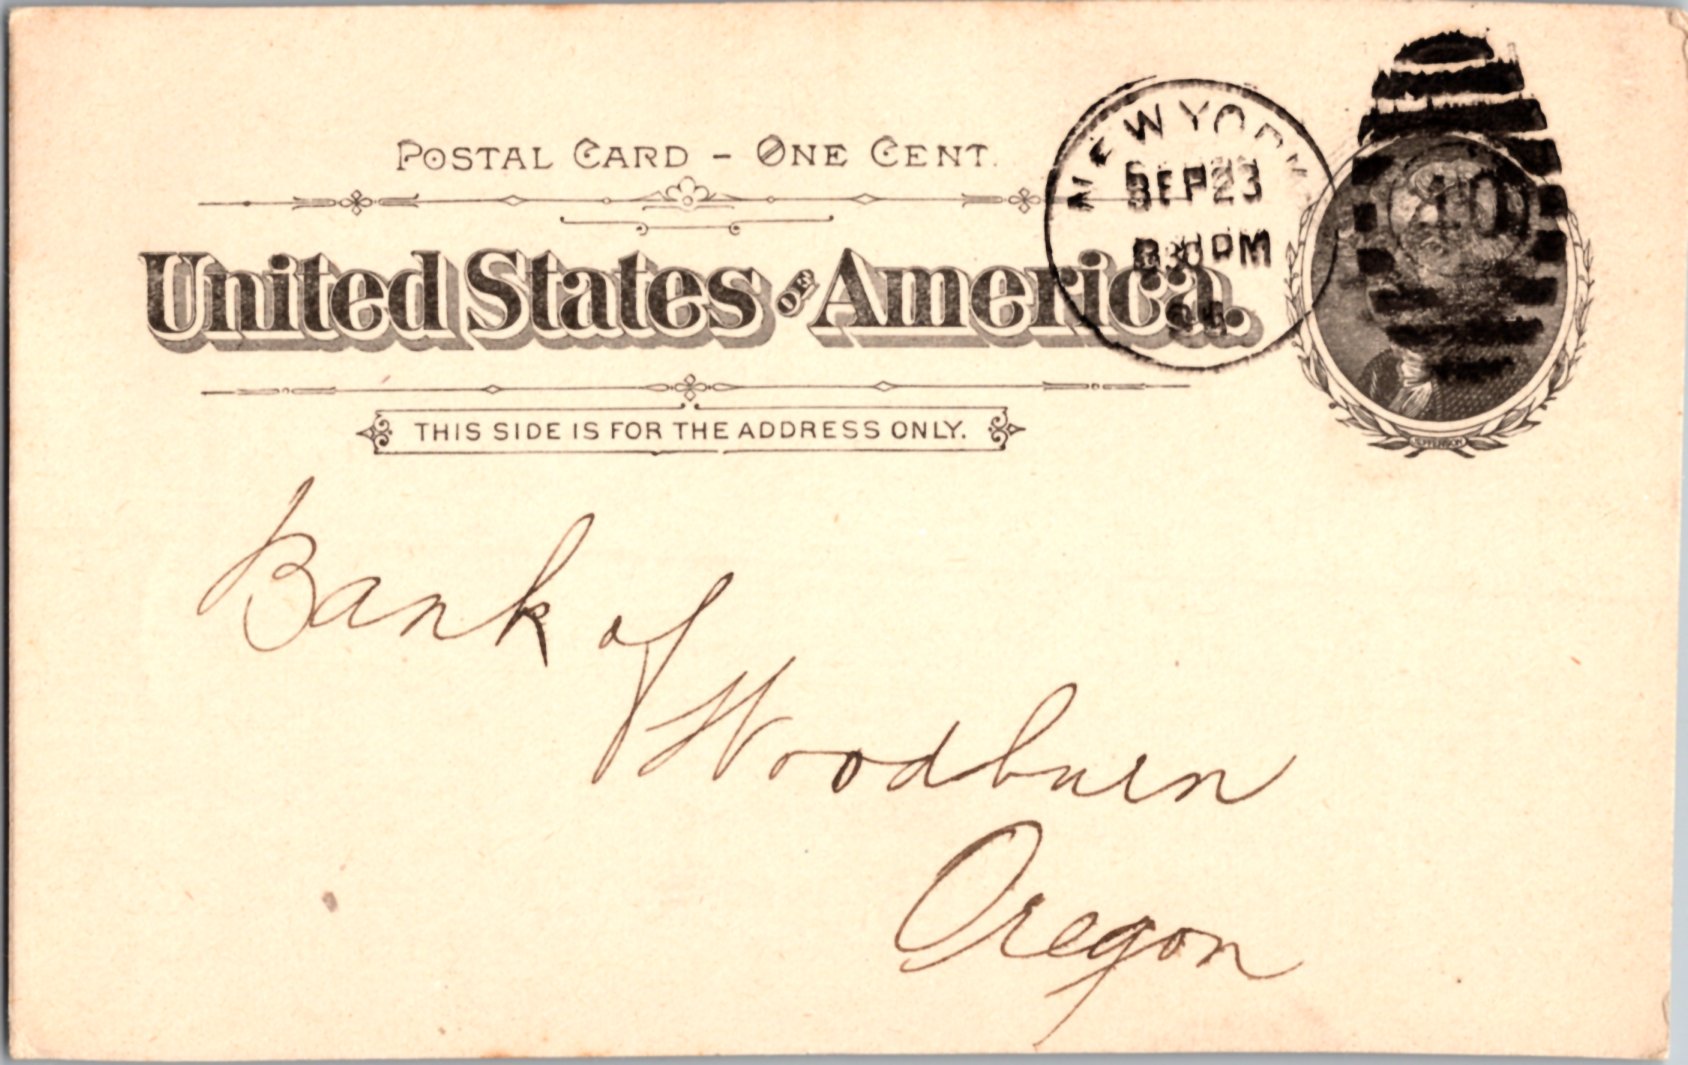 POSTAL CARD - ONE CENT.
United States OF America.
THIS SIDE IS FOR THE ADDRESS ONLY.
NEW YORK
SEP 23
PM
40
JEFFERSON
Bank of
Woodburn
Oregon